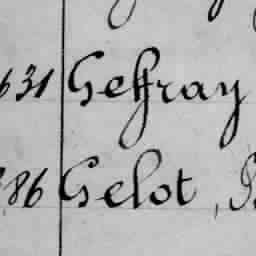 631 Geffray
86 Gelot,